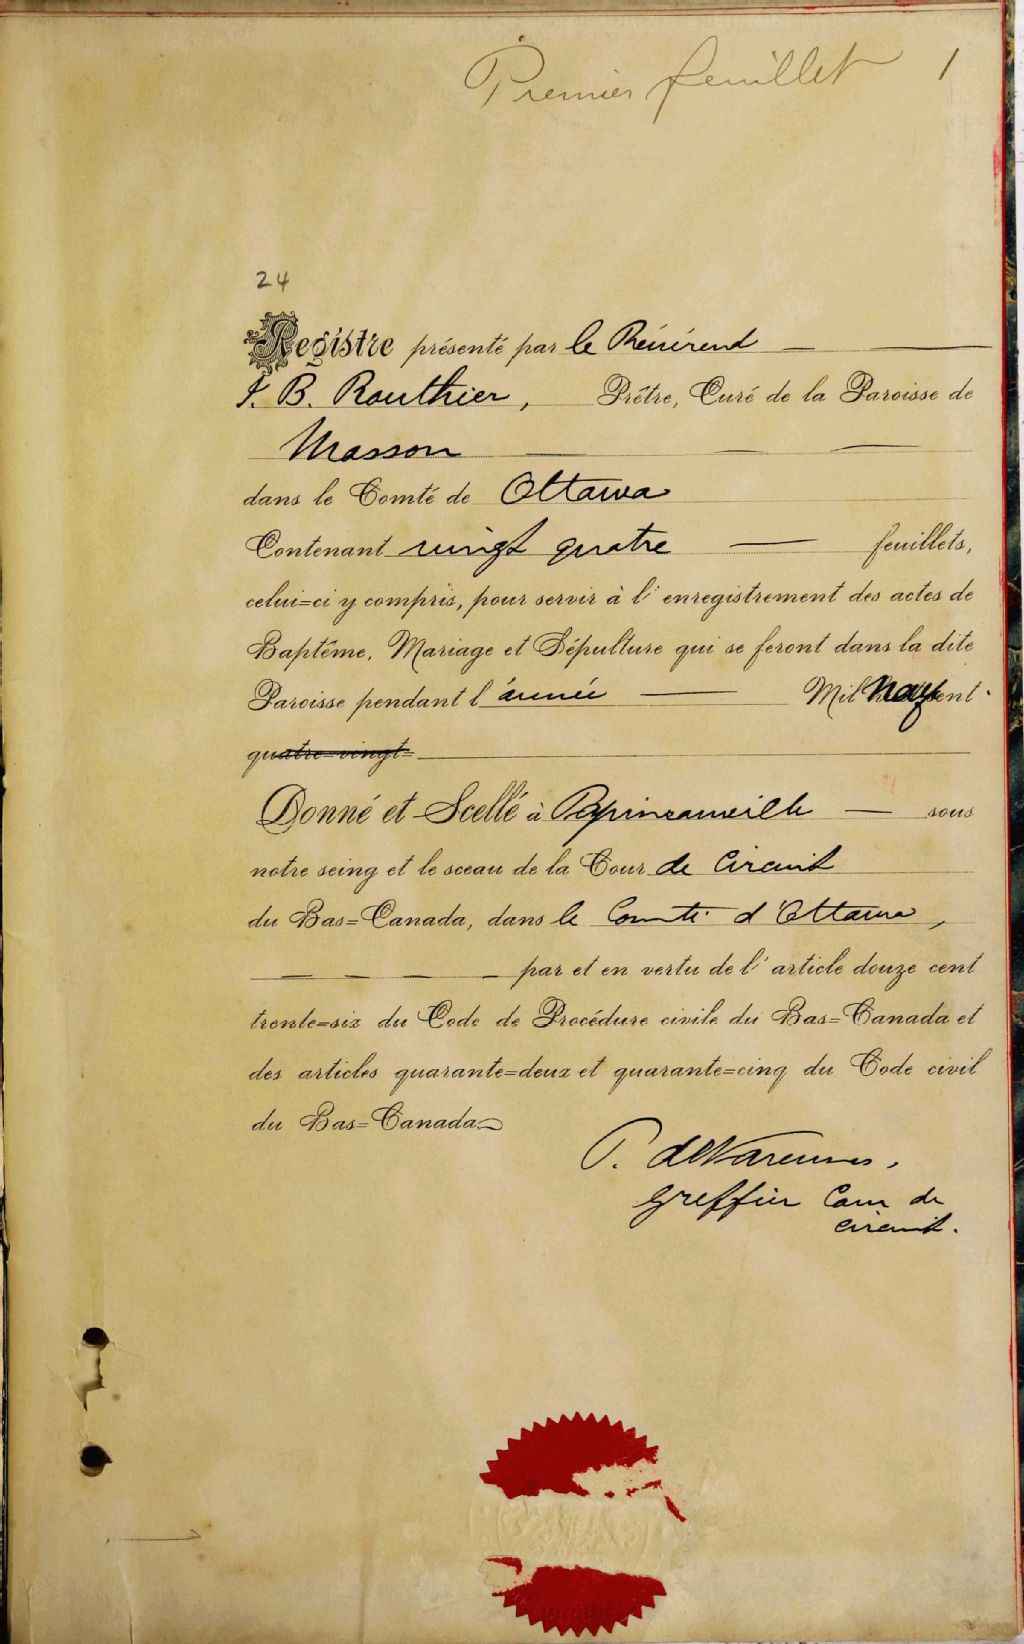 Premier feuillet 1
24
Registre présenté par le Révérend
J. B. Routhier, Prêtre, Curé de la Paroisse de
Masson
dans le Comté de Ottawa
Contenant vingt quatre feuillets,
celui=ci y compris, pour servir à l'enregistrement des actes de
Baptême, Mariage et Sépulture qui se feront dans la dite
Paroisse pendant l'année Mil cent
quatre=vingt=
Donné et Scellé à Papineauville sous
notre seing et le sceau de la Cour de Circuit
du Bas=Canada, dans le Comté d'Ottawa,
par et en vertu de l'article douze cent
trente=six du Code de Procédure civile du Bas=Canada et
des articles quarante=deux et quarante=cinq du Code civil
du Bas=Canada
greffier Cour de
circuit.